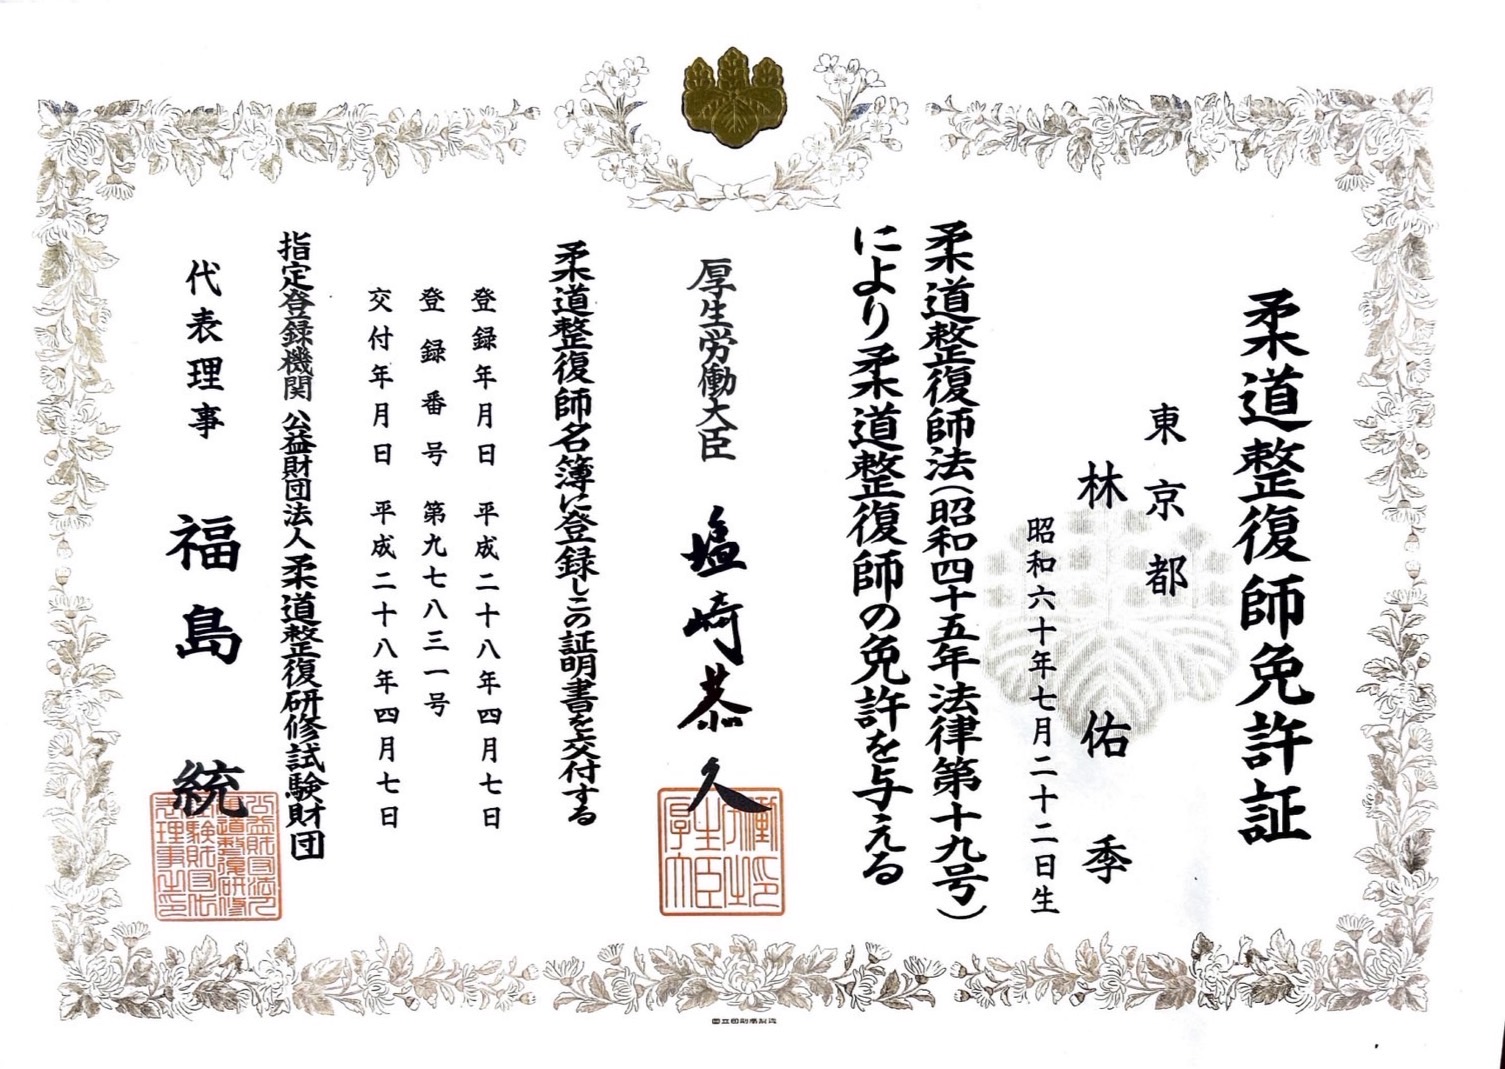 柔道整復師免許証
東京都
林佑季
昭和六十年七月二十二日生
柔道整復師法(昭和四十五年法律第十九号)
により柔道整復師の免許を与える
厚生労働大臣 塩崎恭久
柔道整復師名簿に登録しこの証明書を交付する
登録年月日 平成二十八年四月七日
登録番号 第九七八三一号
交付年月日 平成二十八年四月七日
指定登録機関 公益財団法人柔道整復研修試験財団
代表理事 福島統
国立印刷局製造